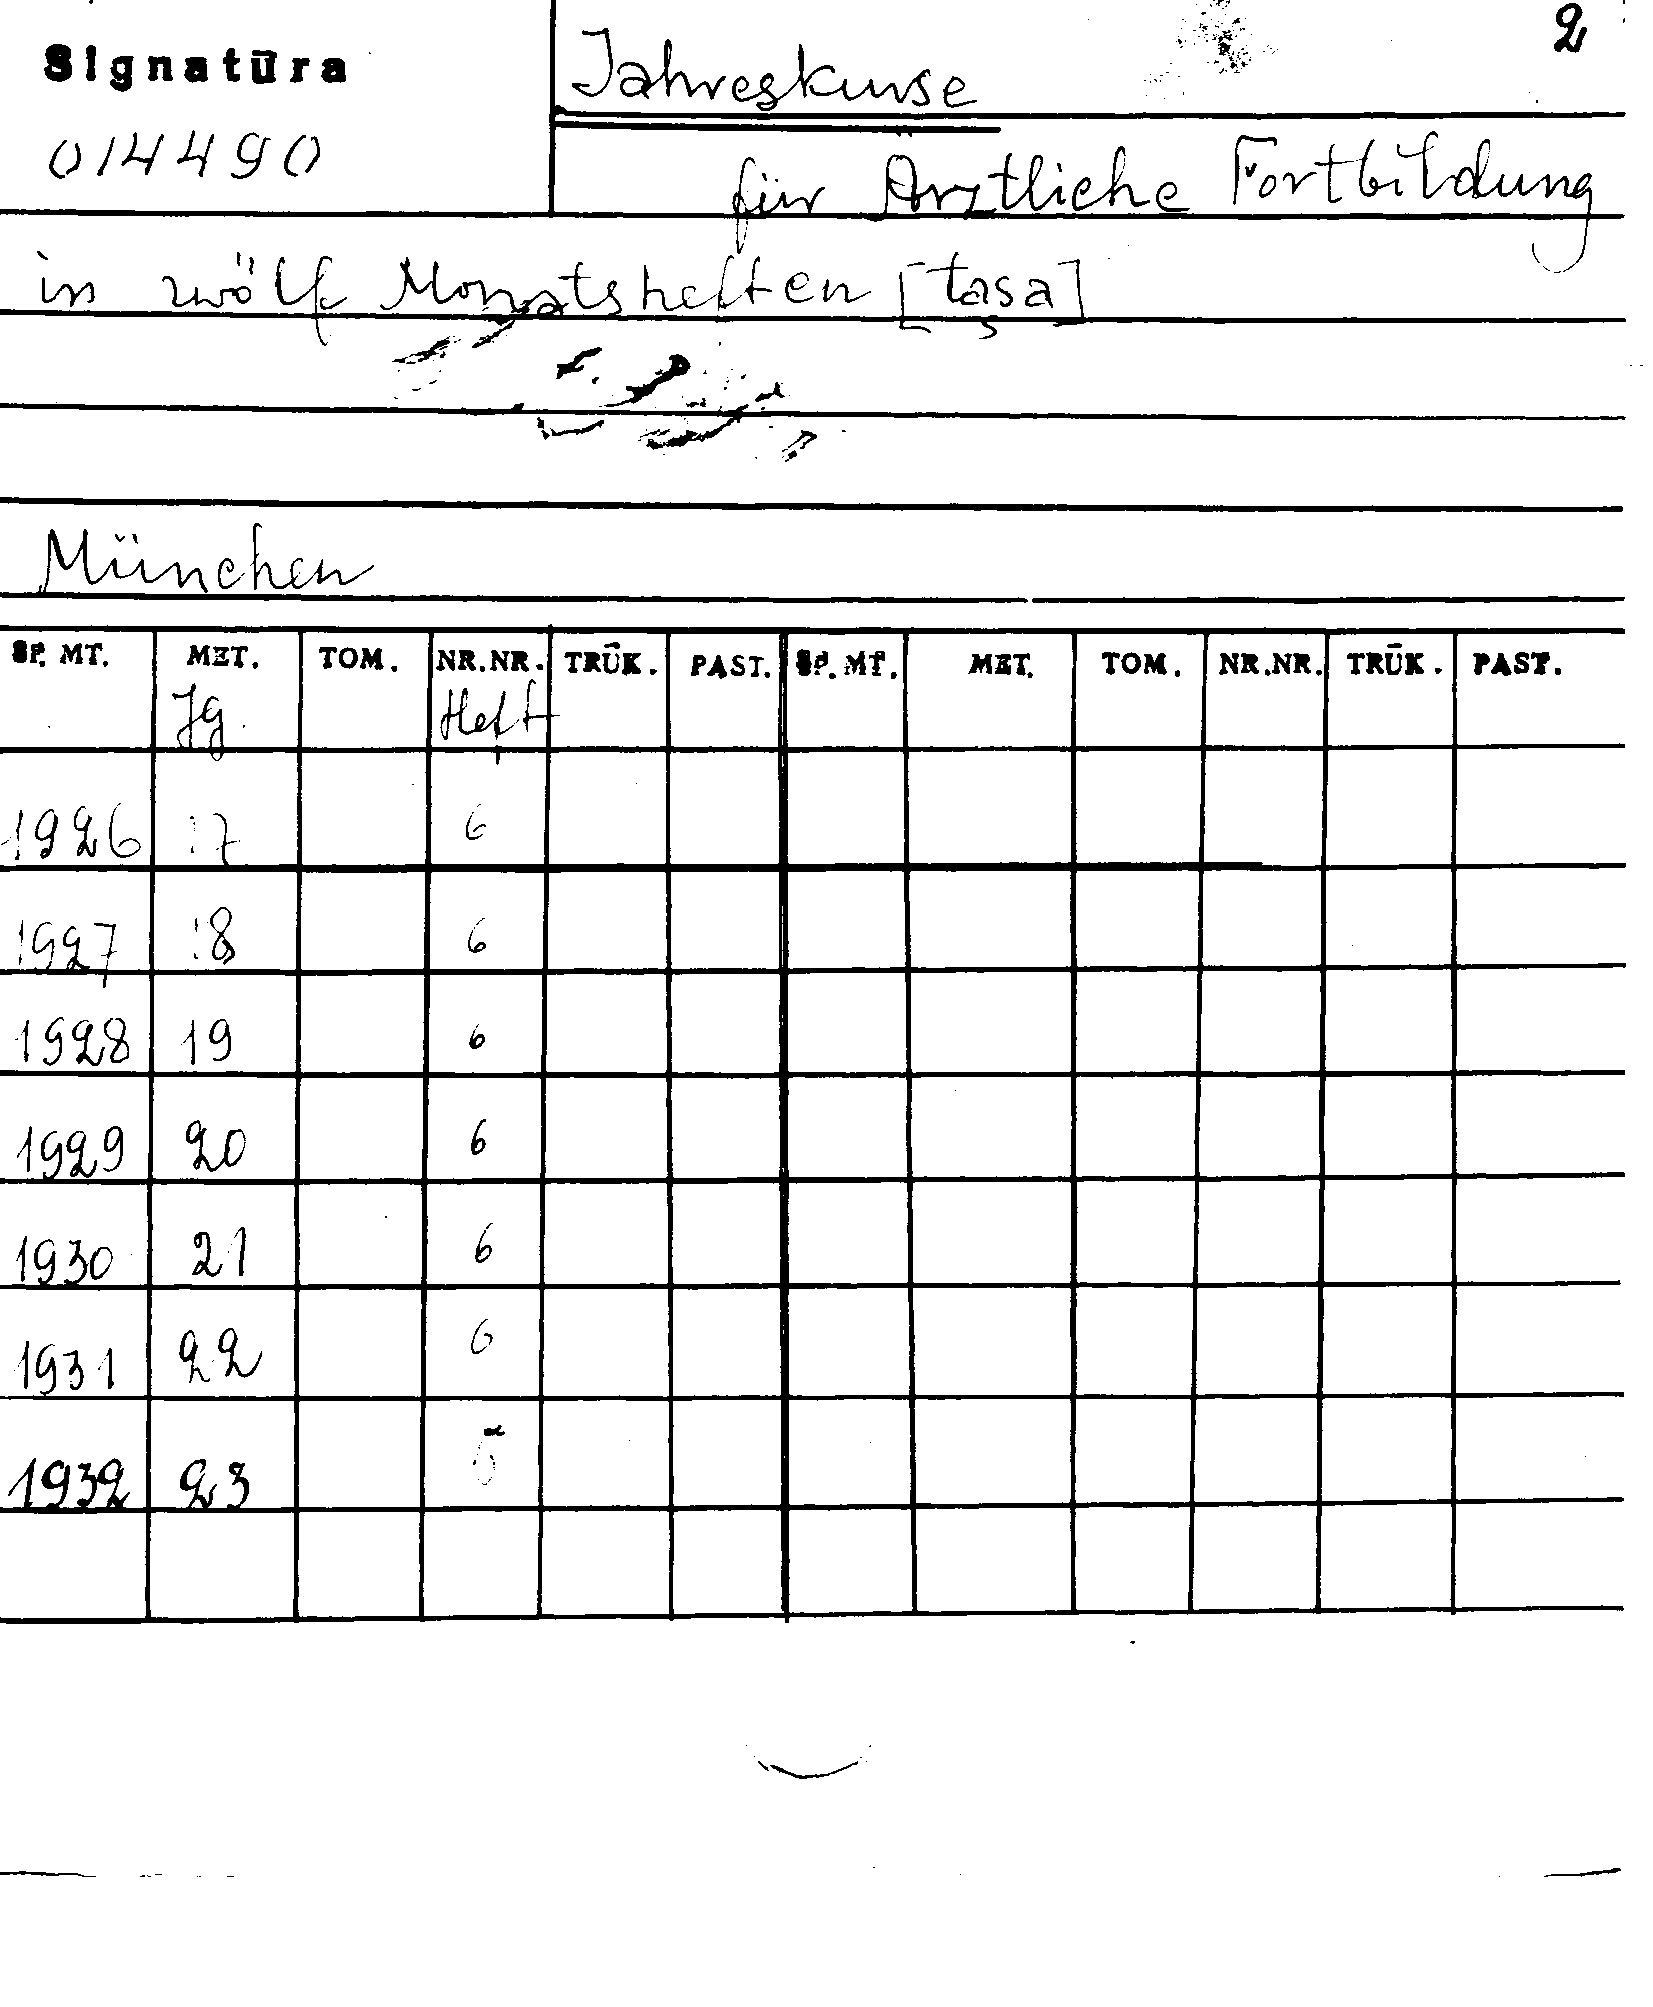 2
Signatūra
Jahreskurse
014490
für Ärztliche Fortbildung
in zwölf Monatsheften [tąsa]
München
SP. MT. MET. TOM. NR.NR. TRŪK. PAST. SP. MT. MET. TOM. NR.NR. TRŪK. PAST.
Jg. Heft
1926 17 6
1927 18 6
1928 19 6
1929 20 6
1930 21 6
1931 22 6
1932 23